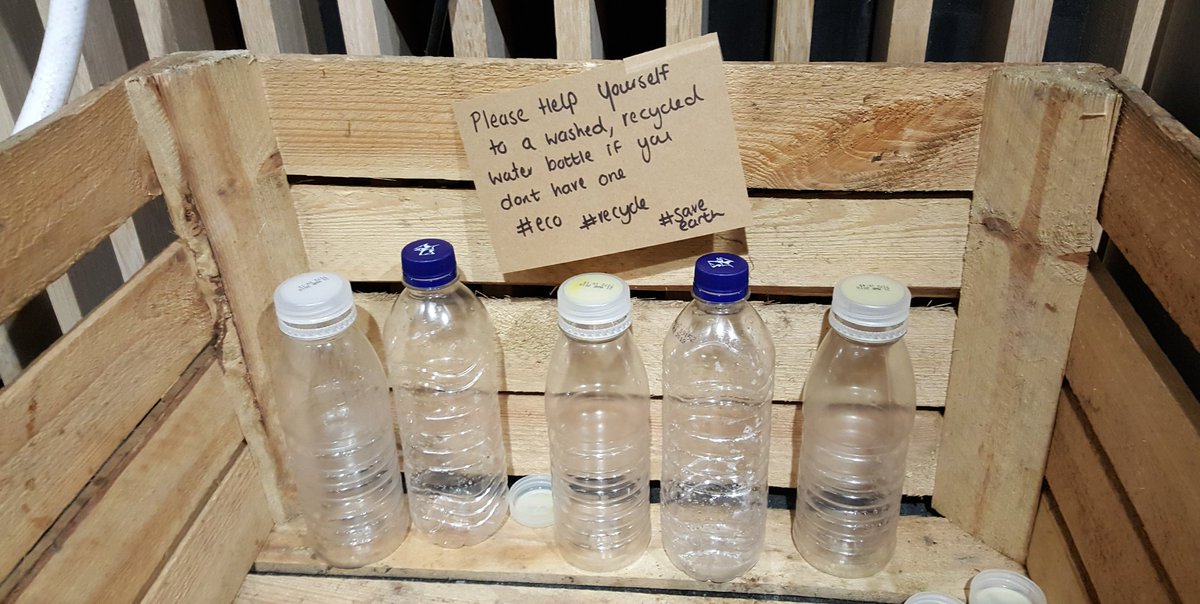 Please Help Yourself
to a washed, recycled
water bottle if you
dont have one
#eco #recycle #save
earth